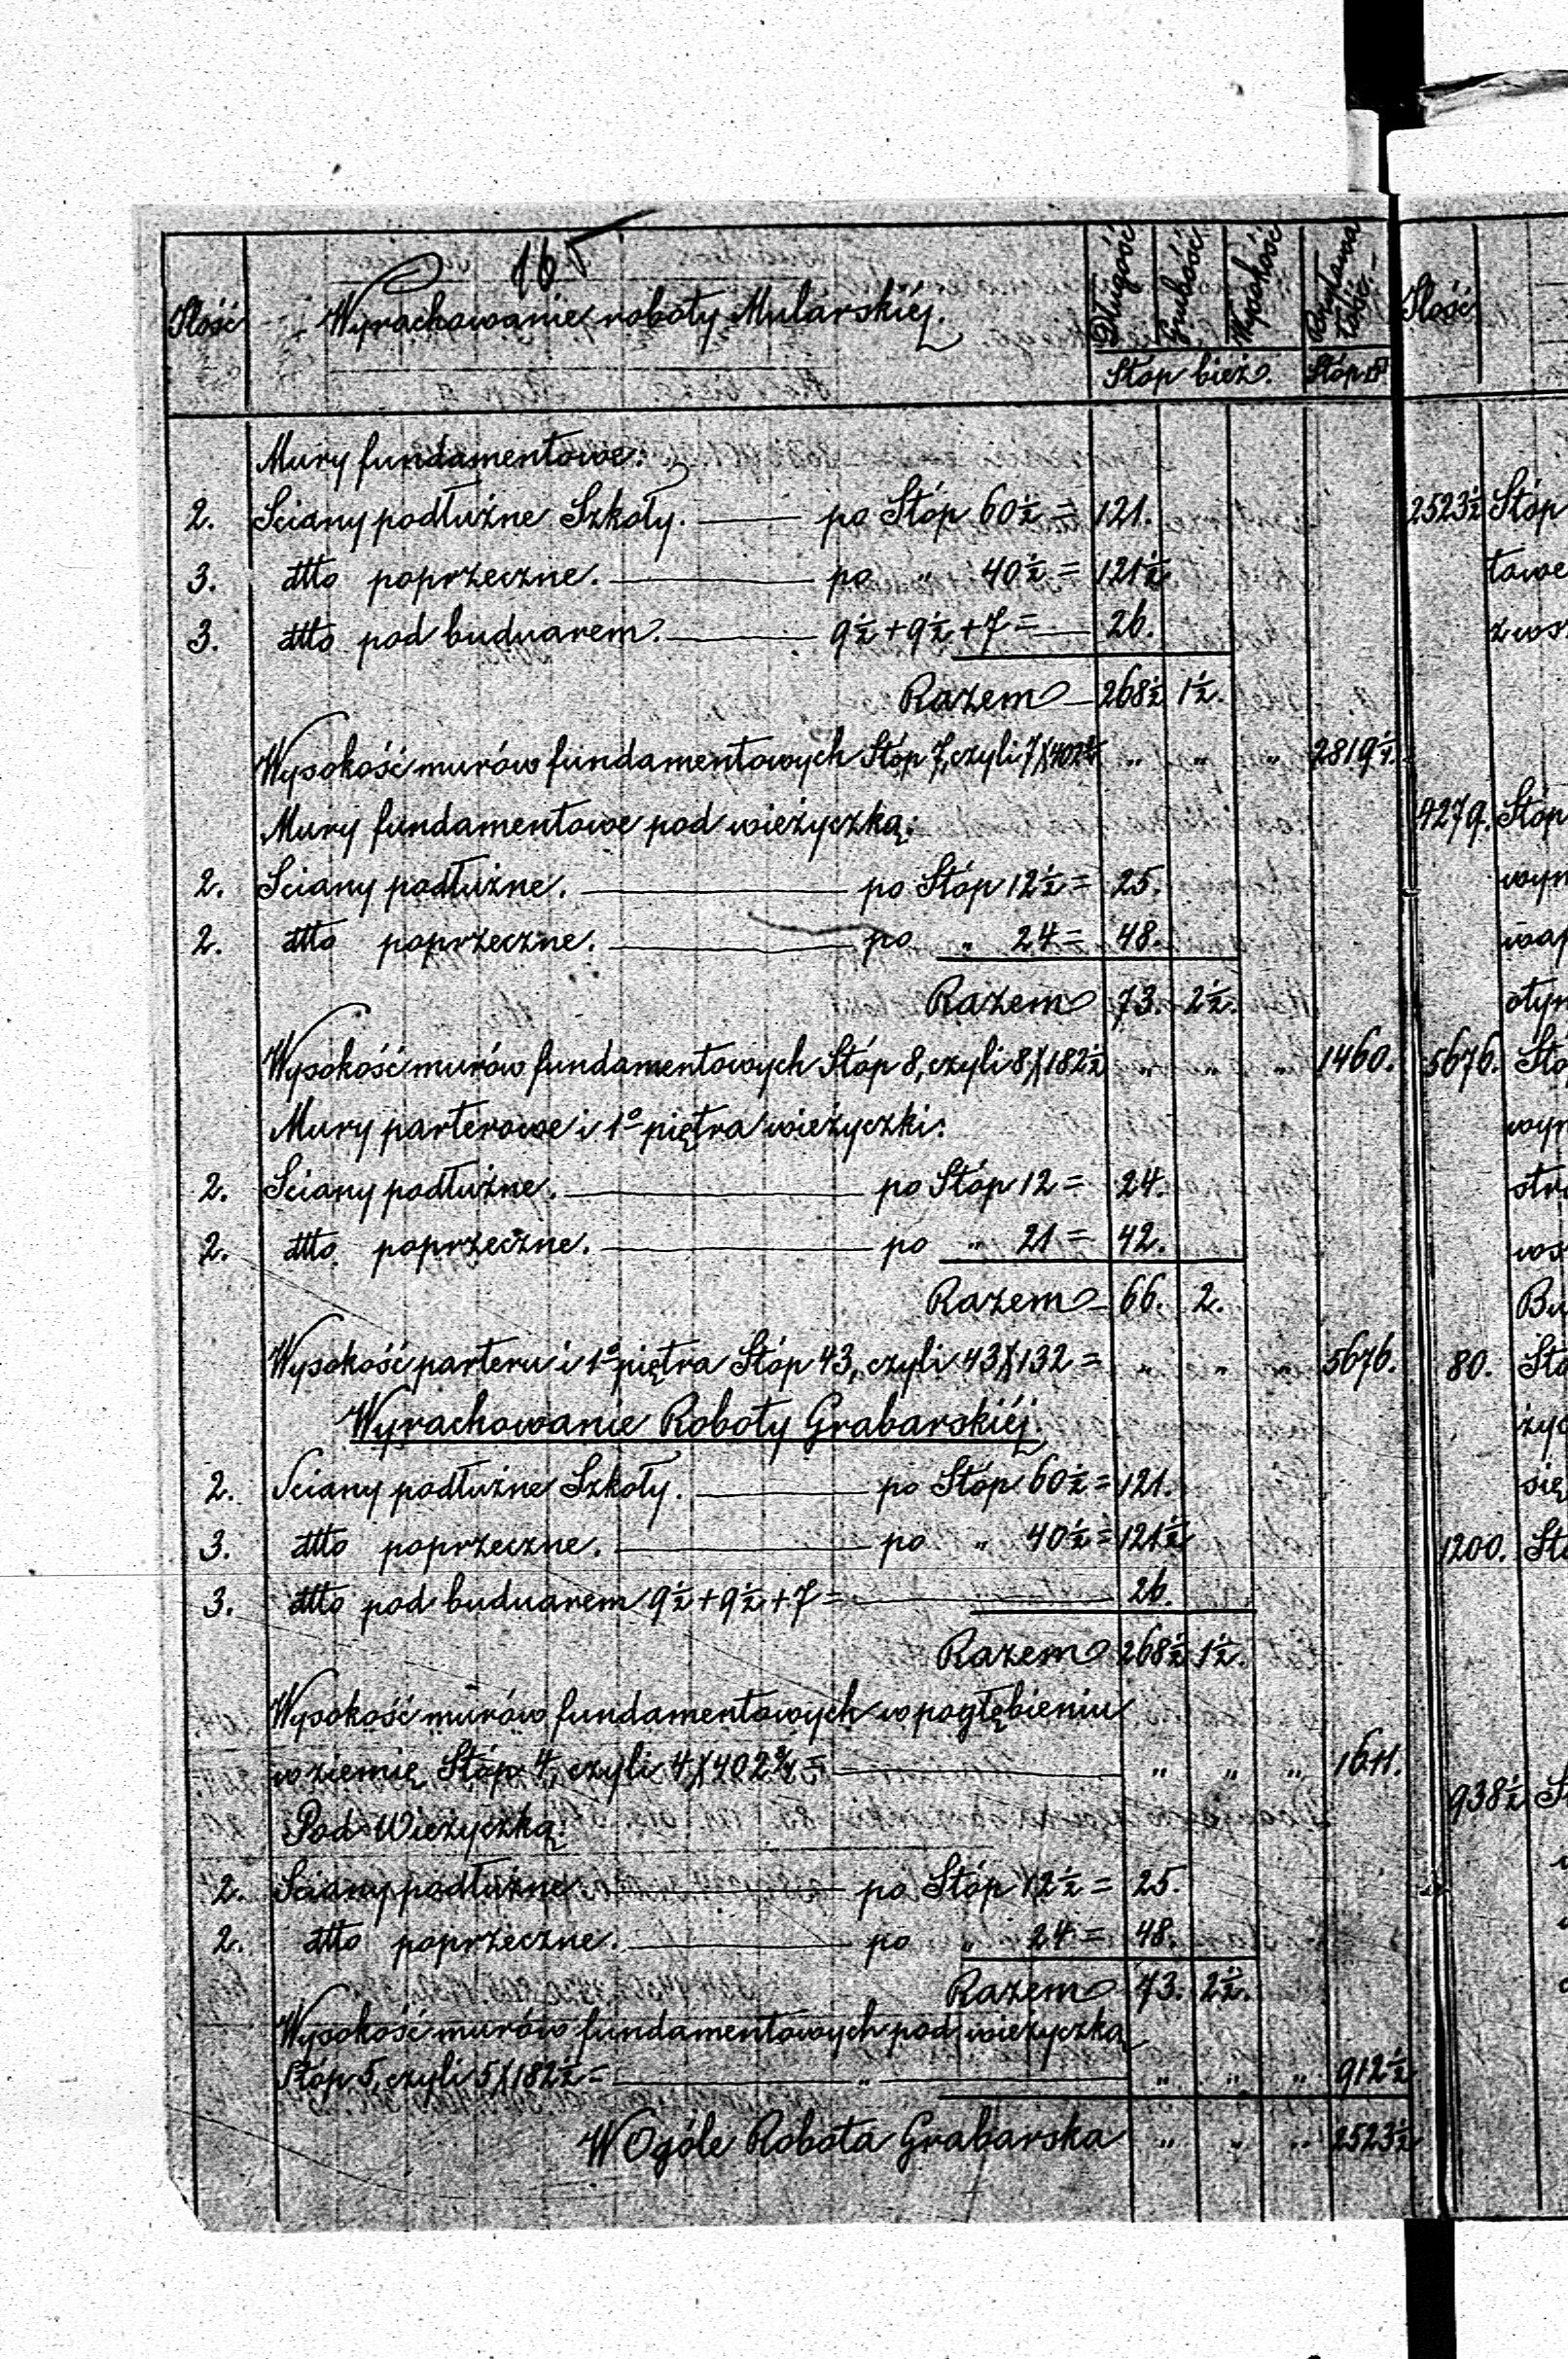 16
Ilość Wyrachowanie roboty Mularskiéj. Długość Grubość Wysokość Bryłowa tość.
Stóp bież. Stóp
Mury fundamentowe:
2. Sciany podłużne Szkoły. po Stóp 60½ = 121.
3. dtto poprzeczne. po " 40½ = 121½
3. dtto pod buduarem. 9½+9½+7 = 26.
Razem 268½ 1½.
Wysokość murów fundamentowych Stóp 7, czyli 7X402¾ " " " 2819¼.
Mury fundamentowe pod wieżyczką:
2. Sciany podłużne. po Stóp 12½ = 25.
2. dtto poprzeczne. po " 24 = 48.
Razem 73. 2½.
Wysokość murów fundamentowych Stóp 8, czyli 8X182½ " " " 1460.
Mury parterowe i 1º piętra wieżyczki:
2. Sciany podłużne. po Stóp 12 = 24.
2. dtto poprzeczne. po " 21 = 42.
Razem 66. 2.
Wysokość parteru i 1º piętra Stóp 43, czyli 43X132 = " " " 5676.
Wyrachowanie Roboty Grabarskiéj.
2. Sciany podłużne Szkoły. po Stóp 60½ = 121.
3. dtto poprzeczne. po " 40½ = 121½
3. dtto pod buduarem 9½+9½+7 = 26.
Razem 268½ 1½.
Wysokość murów fundamentowych w pogłębieniu
w ziemię Stóp 4, czyli 4X402¾ = " " " 1611.
Pod Wieżyczką.
2. Sciany podłużne. po Stóp 12½ = 25.
2. dtto poprzeczne. po " 24 = 48.
Razem 73. 2½.
Wysokość murów fundamentowych pod wieżyczką
Stóp 5, czyli 5X182½ = " " " " 912½
W Ogóle Robota Grabarska " " " 2523½
Ilość
2523½ Stóp
towe
4279. Stóp
5676.
80.
1200.
938½